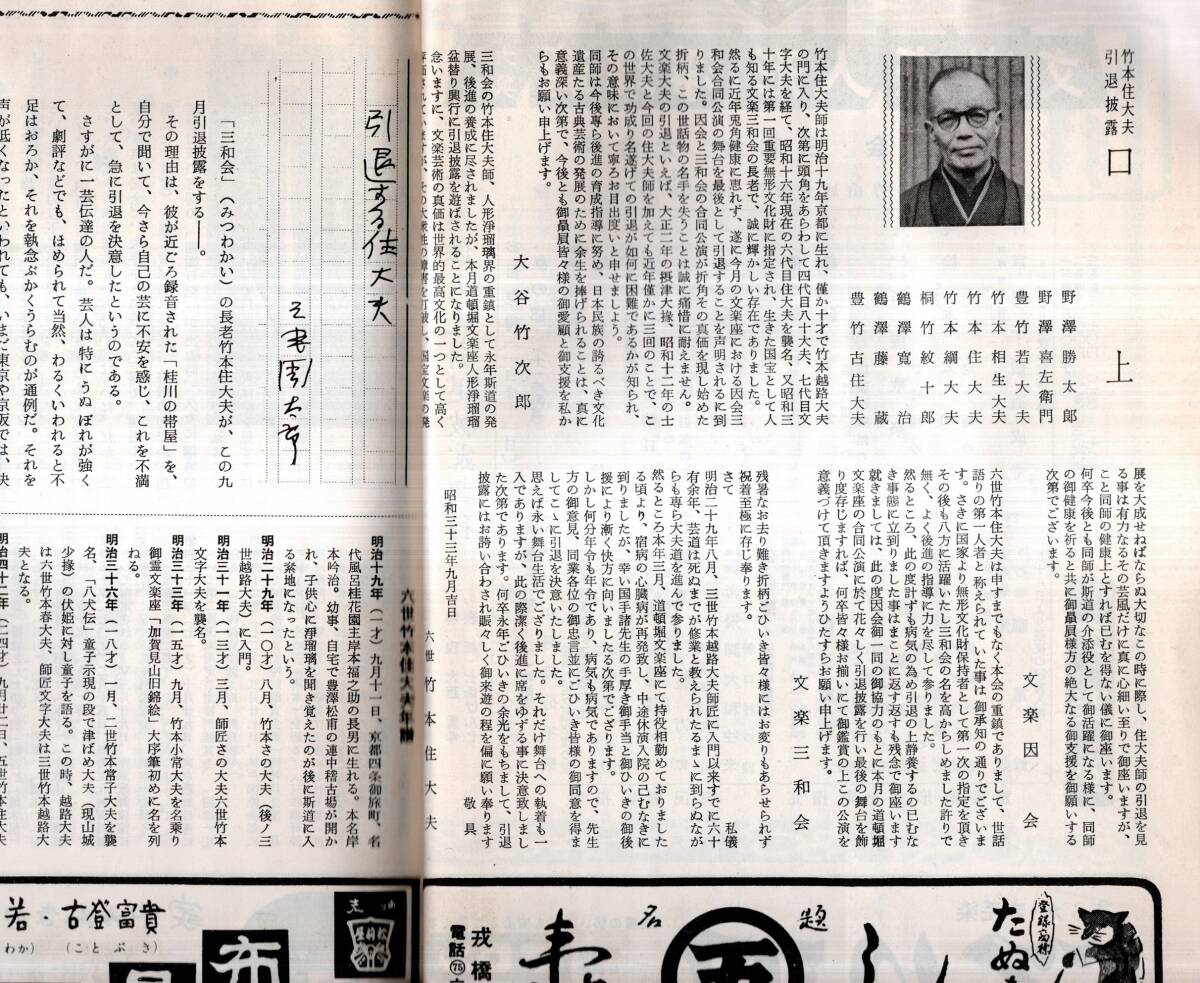 竹本住大夫
引退披露
口上
竹本住大夫師は明治十九年京都に生れ、僅か十才で竹本越路大夫
の門に入り、次第に頭角をあらわして四代目八十大夫、七代目文
字大夫を経て、昭和十六年現在の六代目住大夫を襲名、又昭和三
十年には第一回重要無形文化財に指定され、生きた国宝として人
も知る文楽三和会の長老で、誠に輝かしい存在でありました。
然るに近年兎角健康に恵れず、遂に今月の文楽座における因会三
和会合同公演の舞台を最後として引退することを声明されるに到
りました。因会と三和会の合同公演が折角その真価を現し始めた
折柄、この世話物の名手を失うことは誠に痛惜に耐えません。
文楽大夫の引退といえば、大正二年の摂津大掾、昭和十二年の土
佐大夫と今回の住大夫師を加えても近年僅かに三回のことで、こ
の世界で功成り名遂げての引退が如何に困難であるかが知られ、
その意味において寧ろお目出度いと申せましょう。
同師は今後専ら後進の育成指導に努め、日本民族の誇るべき文化
遺産たる古典芸術の発展のために余生を捧げられることは、真に
意義深い次第で、今後とも御贔屓皆々様の御愛顧と御支援を私か
らもお願い申上げます。
大谷竹次郎
三和会の竹本住大夫師、人形浄瑠璃界の重鎮として永年斯道の発
展、後進の養成に尽されましたが、本月道頓堀文楽座人形浄瑠璃
盆替り興行に引退披露を遊ばされることになりました。
念いますに、文楽芸術の真価は世界的最高文化の一つとして高く
野澤勝太郎
野澤喜左衛門
豊竹若大夫
竹本相生大夫
竹本住大夫
竹本綱大夫
桐竹紋十郎
鶴澤寛治
鶴澤藤蔵
豊竹古住大夫
展を大成せねばならぬ大切なこの時に際し、住大夫師の引退を見
る事は有力なるその芸風だけに真に心細い至りで御座いますが、
こと同師の健康上とすれば已むを得ない儀に御座います。
何卒今後とも同師が斯道の介添役として御活躍になる様に、同師
の御健康を祈ると共に御贔屓様方の絶大なる御支援を御願いする
次第でございます。
文楽因会
六世竹本住大夫は申すまでもなく本会の重鎮でありまして、世話
語りの第一人者と称えられていた事は御承知の通りでございま
す。さきに国家より無形文化財保持者として第一次の指定を頂き
その後も八方に活躍いたし三和会の名を高からしめました許りで
無く、よく後進の指導に力を尽して参りました。
然るところ、此の度計ずも病気の為め引退の上静養するの已むな
き事態に立到りました事はまことに返す返すも残念で御座います
就きましては、此の度因会御一同の御協力のもとに本月の道頓堀
文楽座の合同公演に於て花々しく引退披露を行い最後の舞台を飾
り度存じますれば、何卒皆々様お揃いにて御鑑賞の上この公演を
意義づけて頂きますようひたすらお願い申上げます。
文楽三和会
残暑なお去り難き折柄ごひいき皆々様にはお変りもあらせられず
祝着至極に存じ奉ります。
さて 私儀
明治二十九年八月、三世竹本越路大夫師匠に入門以来すでに六十
有余年、芸道は死ぬまでが修業と教えられるまゝに到らぬなが
らも専ら大夫道を進んで参りました。
然るところ本年三月、道頓堀文楽座にて持役相勤めておりました
る頃より、宿病の心臓病が再発致し、中途休演入院の己むなきに
到りましたが、幸い国手諸先生の手厚き御手当と御ひいきの御後
援により漸く快方に向いましたる次第でござります。
しかし何分年令も年令であり、病気も病気でありますので、先生
方の御意見、同業各位の御忠言並にごひいき皆様の御同意を得ま
してこゝに引退を決意いたしました。
思えば永い舞台生活でござりました。それだけ舞台への執着も一
入でありますが、此の際潔く後進に席をゆずる事に決意致しまし
た次第であります。何卒永年ごひいきの余光をもちまして、引退
披露にはお誘い合わされ賑々しく御来遊の程を偏に願い奉ります
敬具
昭和三十三年九月吉日
六世 竹本住大夫
引退する住大夫
「三和会」（みつわかい）の長老竹本住大夫が、この九
月引退披露をする――。
その理由は、彼が近ごろ録音された「桂川の帯屋」を、
自分で聞いて、今さら自己の芸に不安を感じ、これを不満
として、急に引退を決意したというのである。
さすがに一芸伝達の人だ。芸人は特にうぬぼれが強く
て、劇評などでも、ほめられて当然、わるくいわれると不
足はおろか、それを執念ぶかくうらむのが通例だ。それを
声が低くなったといわれても、いまだ東京や京阪では、決
六世竹本住大夫年譜
明治十九年（一才）九月十一日、京都四条御旅町、名
代風呂桂花園主岸本福之助の長男に生れる。本名岸
本吟治。幼事、自宅で豊澤松甫の連中稽古場が開か
れ、子供心に浄瑠璃を聞き覚えたのが後に斯道に入
る素地になったという。
明治二十九年（一〇才）八月、竹本さの大夫（後ノ三
世越路大夫）に入門。
明治三十一年（一三才）三月、師匠さの大夫六世竹本
文字大夫を襲名。
明治三十三年（一五才）九月、竹本小常大夫を名乗り
御霊文楽座「加賀見山旧錦絵」大序筆初めに名を列
ねる。
明治三十六年（一八才）一月、二世竹本常子大夫を襲
名、「八犬伝」童子示現の段で津ばめ大夫（現山城
少掾）の伏姫に対し童子を語る。この時、越路大夫
は六世竹本春大夫、師匠文字大夫は三世竹本越路大
夫となる。
明治四十二年（二四才）九月廿二日、五世竹本住大夫
若・古登富貴
(わか) (ことぶき)
布
電話⑦⑤
戎橋
名題
登録商標
たぬ